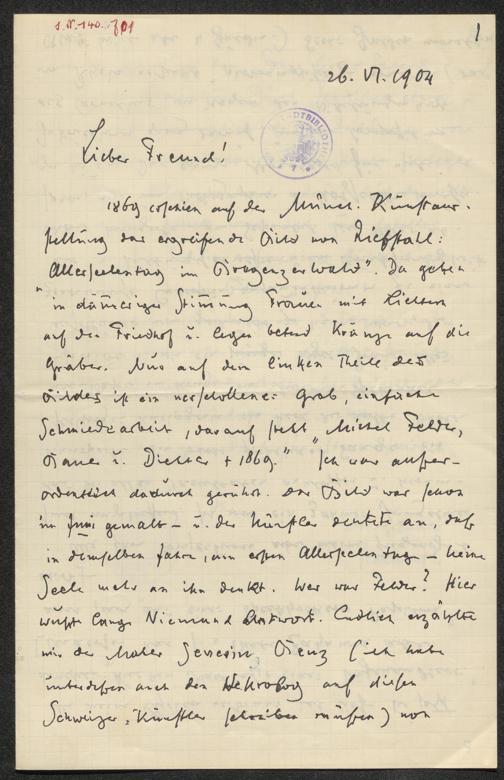 1
26. VI. 1904
Lieber Freund!
1869 erschien auf der Münch. Kunstaus-
stellung das ergreifende Bild von Riefstahl:
"Allerseelentag im Bregenzerwald". Da gehen
in dämmeriger Stimmung Frauen mit Lichtern
auf den Friedhof u. legen betend Kränze auf die
Gräber. Nur auf dem linken Theile des
Bildes ist ein verschollenes Grab, einfache
Schmiedearbeit, darauf steht "Michel Felder,
Bauer u. Dichter + 1869." Ich war außer-
ordentlich dadurch gerührt. Das Bild war schon
im Juni gemalt – u. der Künstler deutete an, daß
in demselben Jahre, am ersten Allerseelentage – keine
Seele mehr an ihn denkt. Wer war Felder? Hier
wußte lange Niemand Antwort. Endlich erzählte
mir der Maler Severin Benz (ich habe
unterdessen auch den Nekrolog auf diesen
Schweizer-Künstler schreiben müssen) von